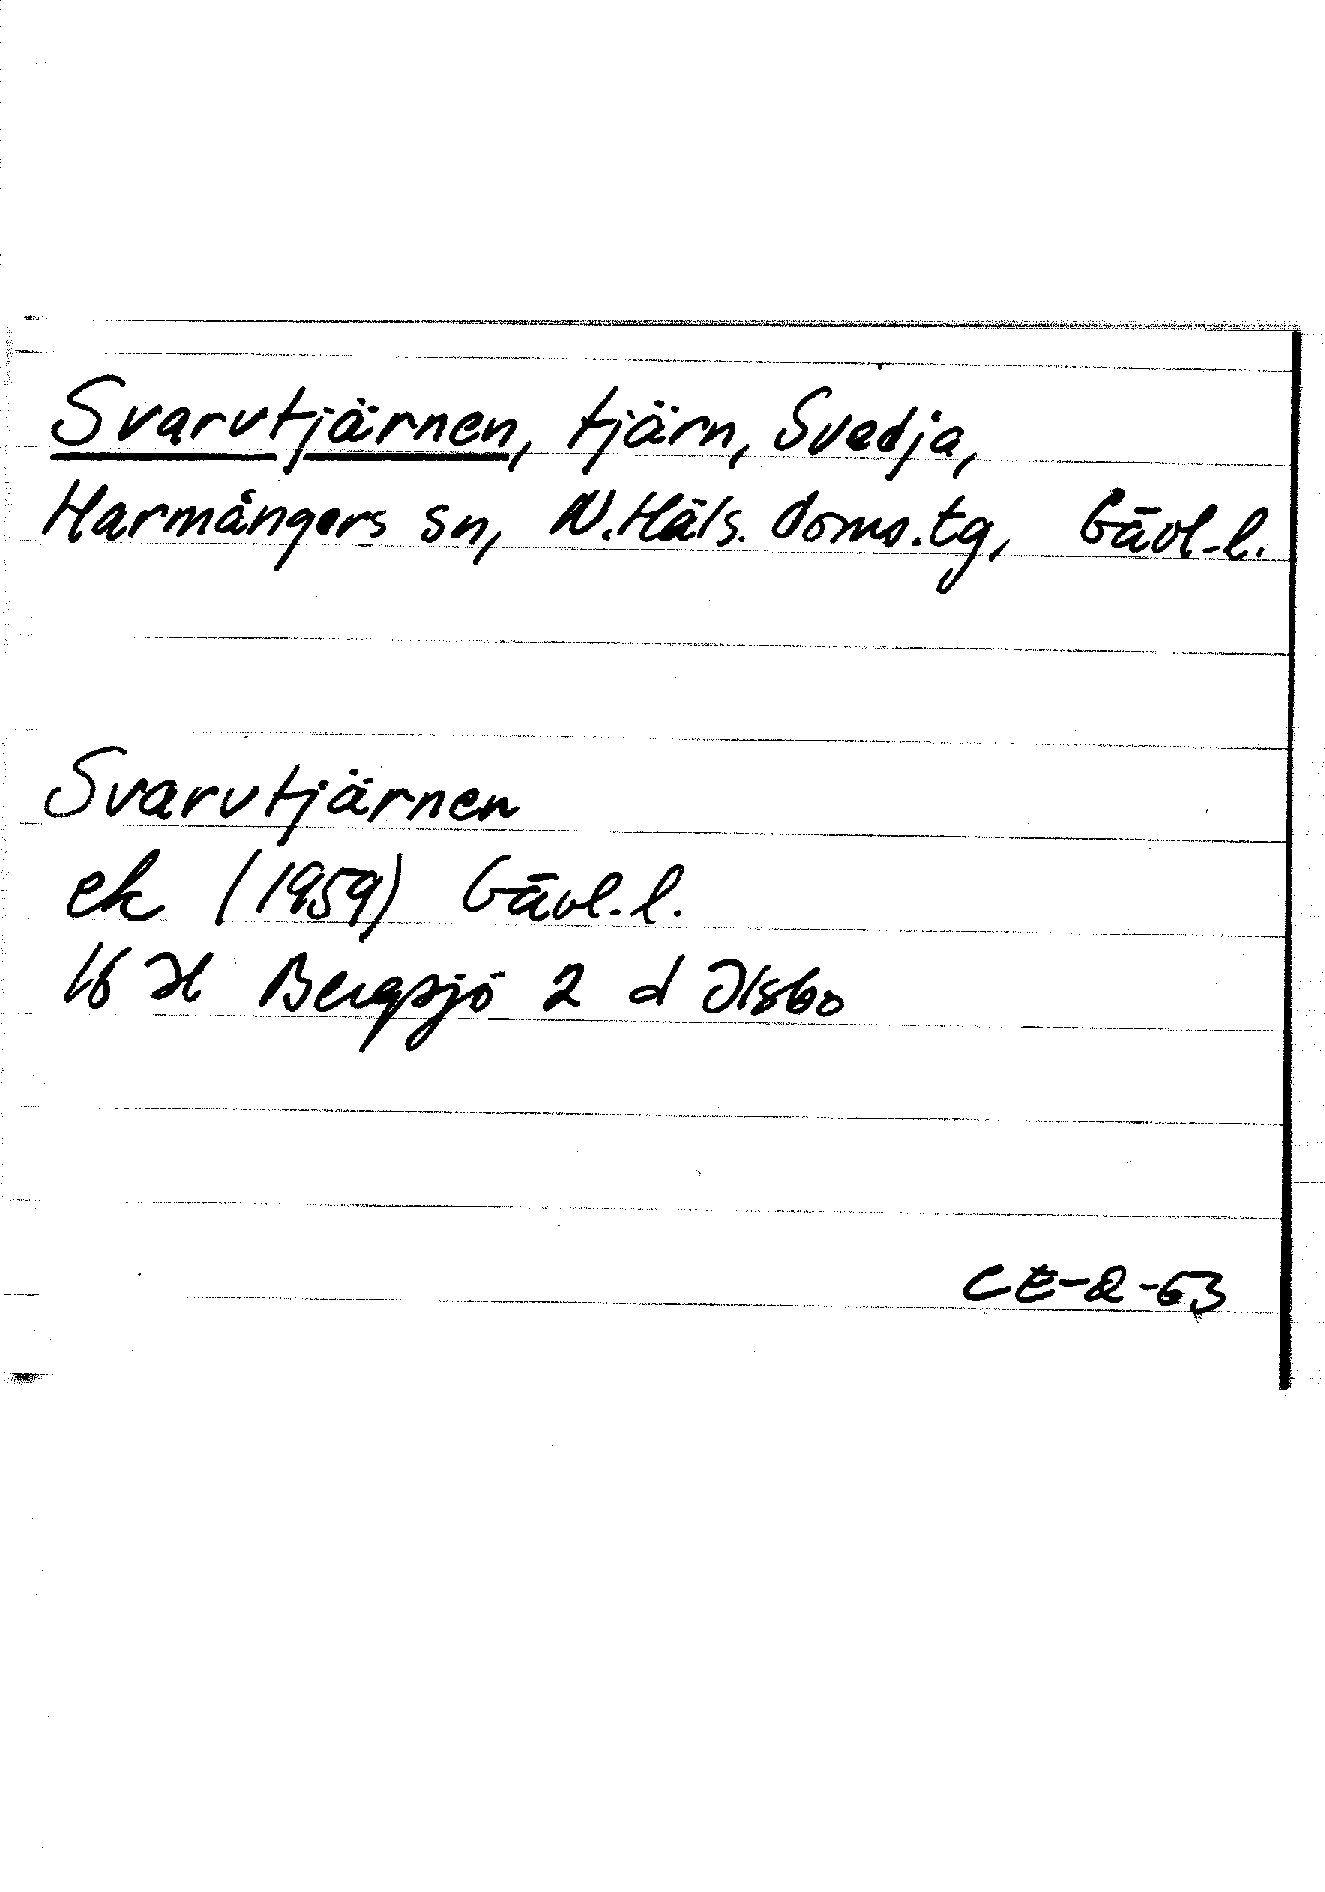 Svarvtjärnen, tjärn, Svedja,
Harmångers sn, N.Häls. doms.tg, Gävl-l.
Svarvtjärnen
ek (1959) Gävl.l.
16 H Bergsjö 2 d Ilsbo
CE-2-63